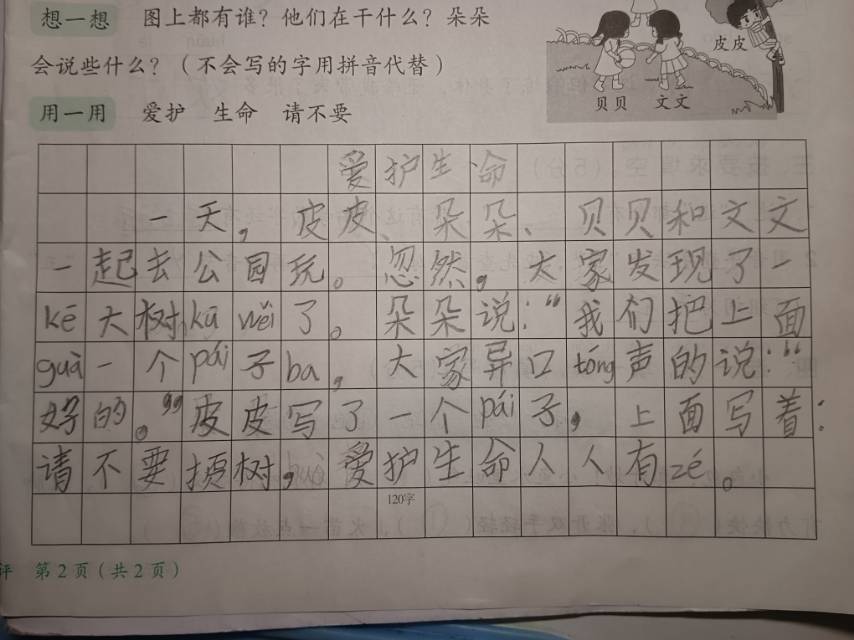 想一想 图上都有谁？他们在干什么？朵朵
会说些什么？（不会写的字用拼音代替）
用一用 爱护 生命 请不要
皮皮
贝贝 文文
爱护生命
一天，皮皮、朵朵、贝贝和文文
一起去公园玩。忽然，大家发现了一
kē大树kū wěi了。朵朵说：“我们把上面
guà一个pái子ba，大家异口tóng声的说：“
好的。”皮皮写了一个pái子，上面写着：
请不要损树，爱护生命人人有zé。
120字
评 第2页（共2页）